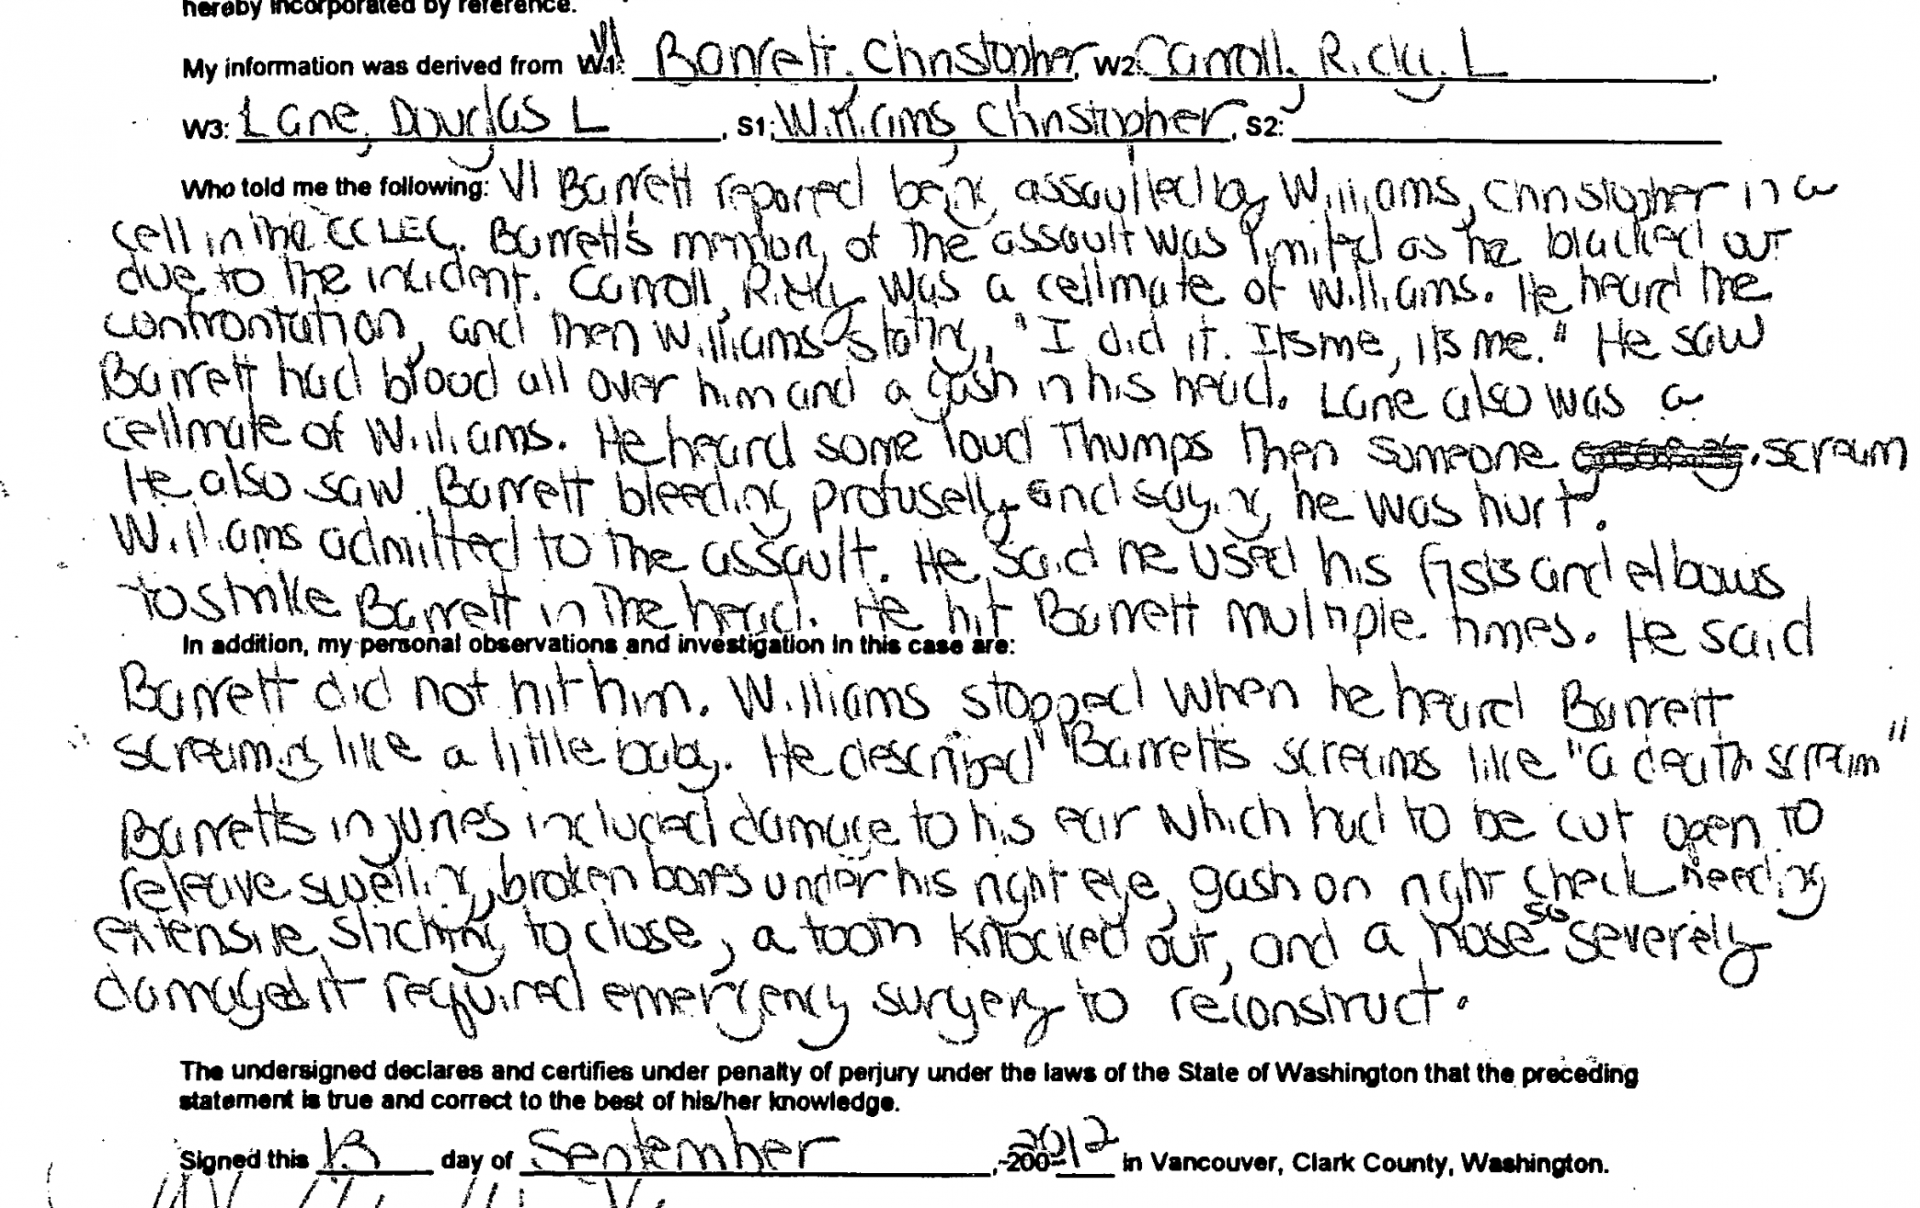 hereby incorporated by reference.
My information was derived from V1 W1: Barrett, Christopher, W2: Carroll, Ricky, L,
W3: Lane, Douglas L, S1: Williams, Christopher, S2:
Who told me the following: V1 Barrett reported being assaulted by Williams, Christopher in a
cell in the CCLEC. Barrett's memory of the assault was limited as he blacked out
due to the incident. Carroll, Ricky was a cellmate of Williams. He heard the
confrontation, and then Williams stating, "I did it. Its me, its me." He saw
Barrett had blood all over him and a gash in his head. Lane also was a
cellmate of Williams. He heard some loud thumps then someone scream
He also saw Barrett bleeding profusely and saying he was hurt.
Williams admitted to the assault. He said he used his fists and elbows
to strike Barrett in the head. He hit Barrett multiple times. He said
In addition, my personal observations and investigation in this case are:
Barrett did not hit him. Williams stopped when he heard Barrett
screaming like a little baby. He described Barrett's screams like "a death scream"
Barretts injuries included damage to his ear which had to be cut open to
releave swelling, broken bones under his right eye, gash on right check needing
extensive stiching to close, a tooth knocked out, and a nose so severely
damaged it required emergency surgery to reconstruct.
The undersigned declares and certifies under penalty of perjury under the laws of the State of Washington that the preceding
statement is true and correct to the best of his/her knowledge.
Signed this 13 day of September, 200 2012 in Vancouver, Clark County, Washington.